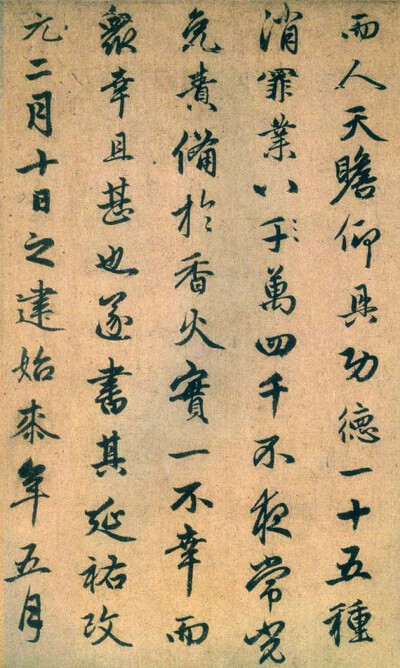 而人天瞻仰具功德一十五種
消罪業八千萬四千不夜常光
免責備於香火實一不幸而
衆幸且甚也遂書其延祐改
元二月十日之建始来年五月